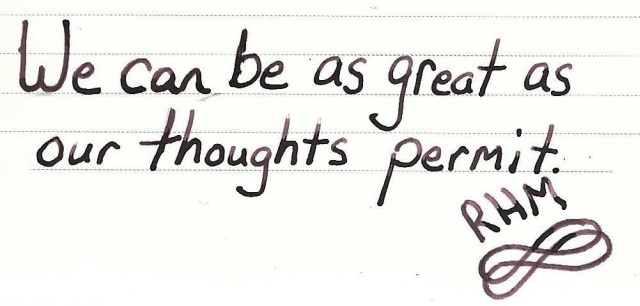 We can be as great as
our thoughts permit.
RHM